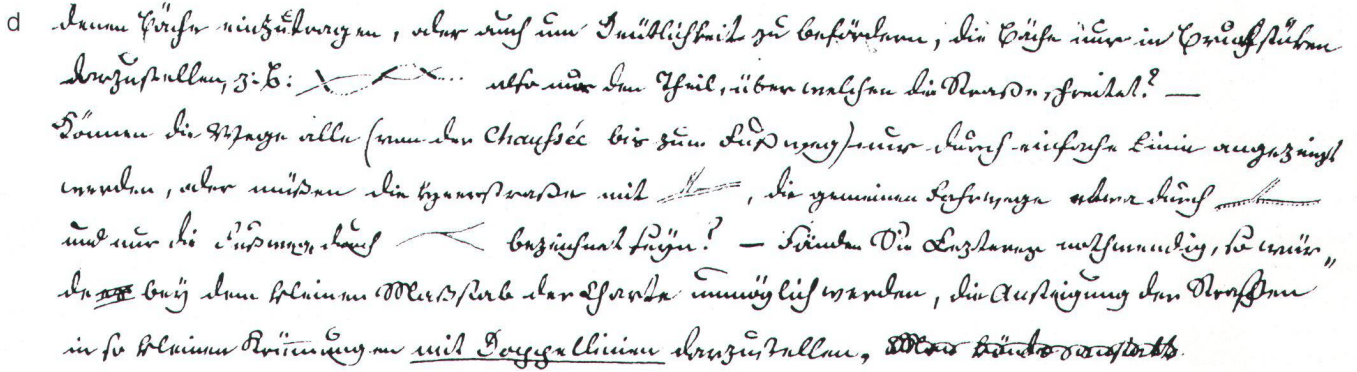 d denen Bäche einzutragen, oder auch um Deütlichkeit zu befördern, die Bäche nur in Bruchstüken
darzustellen, z. B: also nur den Theil, über welchen die Straße schreitet? —
Können die Wege alle (von der Chaussée bis zum Fußweg) nur durch einfache Linie angezeigt
werden, oder müßen die Heerstraße mit , die gemeinen Fahrwege etwa durch
und nur die Fußwege durch bezeichnet seyn? — Fänden Sie Lezteres nothwendig, so wür„
de es bey dem kleinen Maßstab der Charte unmöglich werden, die Ansteigung der Straßen
in so kleinen Krümmungen mit Doppellinien darzustellen. Man könte anstatt